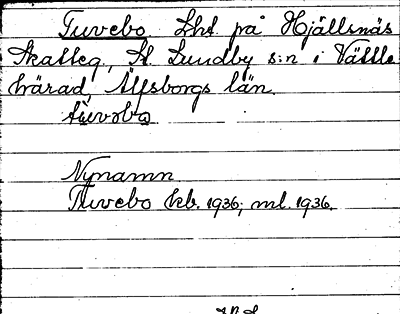 Tuvebo Lht på Hjällsnäs
Skatteg, St. Lundby s:n i Vättle
härad, Älfsborgs län.
tuvobo
Nynamn
Tuvebo kb. 1936; ml. 1936.